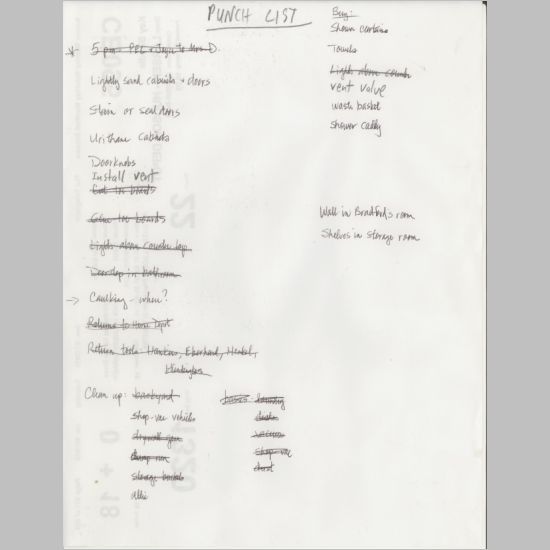 PUNCH LIST
5 pm - PEC + Jayn to Mrs D.
Lightly sand cabinets + doors
Stain or seal doors
Urithane cabinets
Doorknobs
Install vent
Cut tin boards
Glue tin boards
Light above counter top
Doorstop in bathroom
Caulking - when?
Returns to Home Depot
Return tools: Hawkins, Eberhard, Henkel,
Clean up: backyard
shop-vac vehicle
drywall gear
dump run
storage bucket
attic
boxes laundry
vacuum
shop vac
dust
Buy:
Shower curtains
Towels
Light above counter
vent valve
wash basket
shower caddy
Wall in Bradford's room
Shelves in storage room